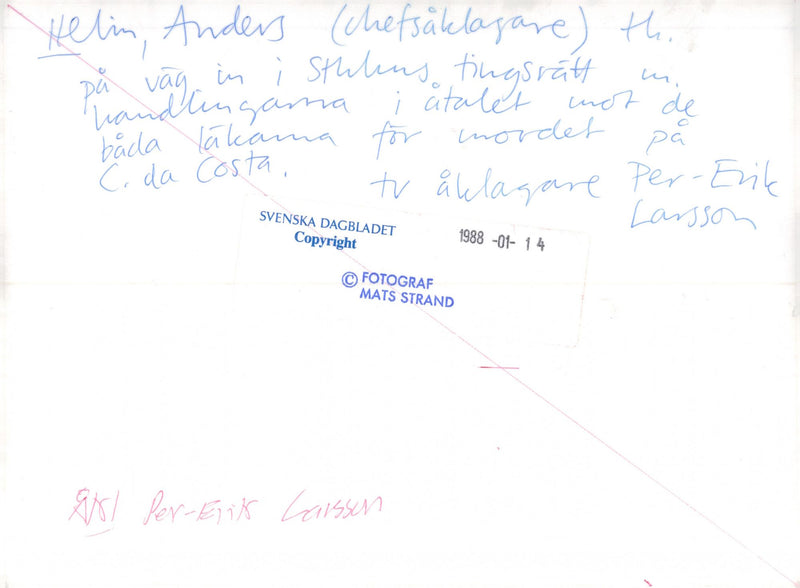 Helin, Anders (chefsåklagare) th.
på väg in i Sthlms tingsrätt m.
handlingarna i åtalet mot de
båda läkarna för mordet på
C. da Costa.
tv åklagare Per-Erik
Larsson
SVENSKA DAGBLADET
Copyright
1988 -01- 14
© FOTOGRAF
MATS STRAND
Per-Erik Larsson